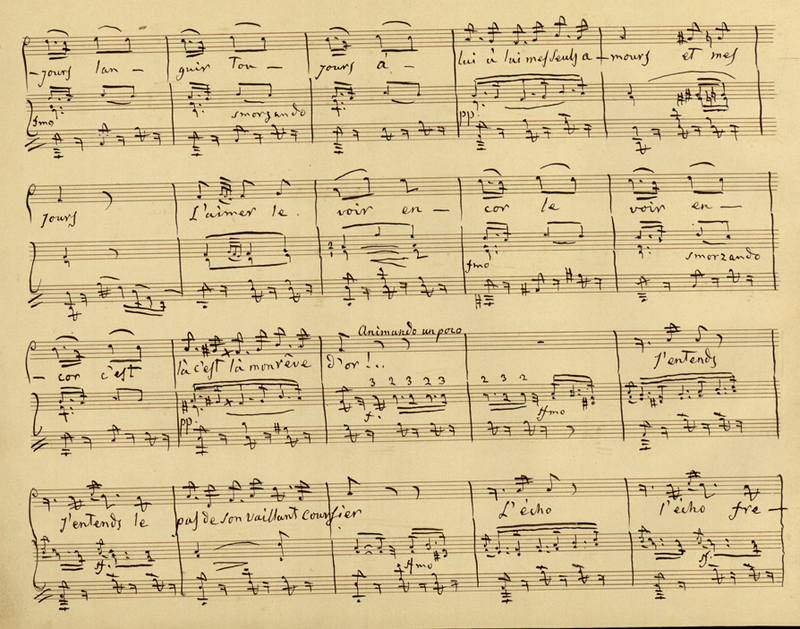 -jours lan - guir Tou - jours à - lui à lui mes seuls a - mours et mes
fmo smorzando pp
jours L'aimer le voir en - cor le voir en -
fmo smorzando
Animando un poco
- cor c'est là c'est là mon rêve d'or!.. J'entends
3 2 3 2 3 2 3 2
pp f. ffmo
J'entends le pas de son vaillant coursier L'écho l'écho fre -
ff. ffmo ff.